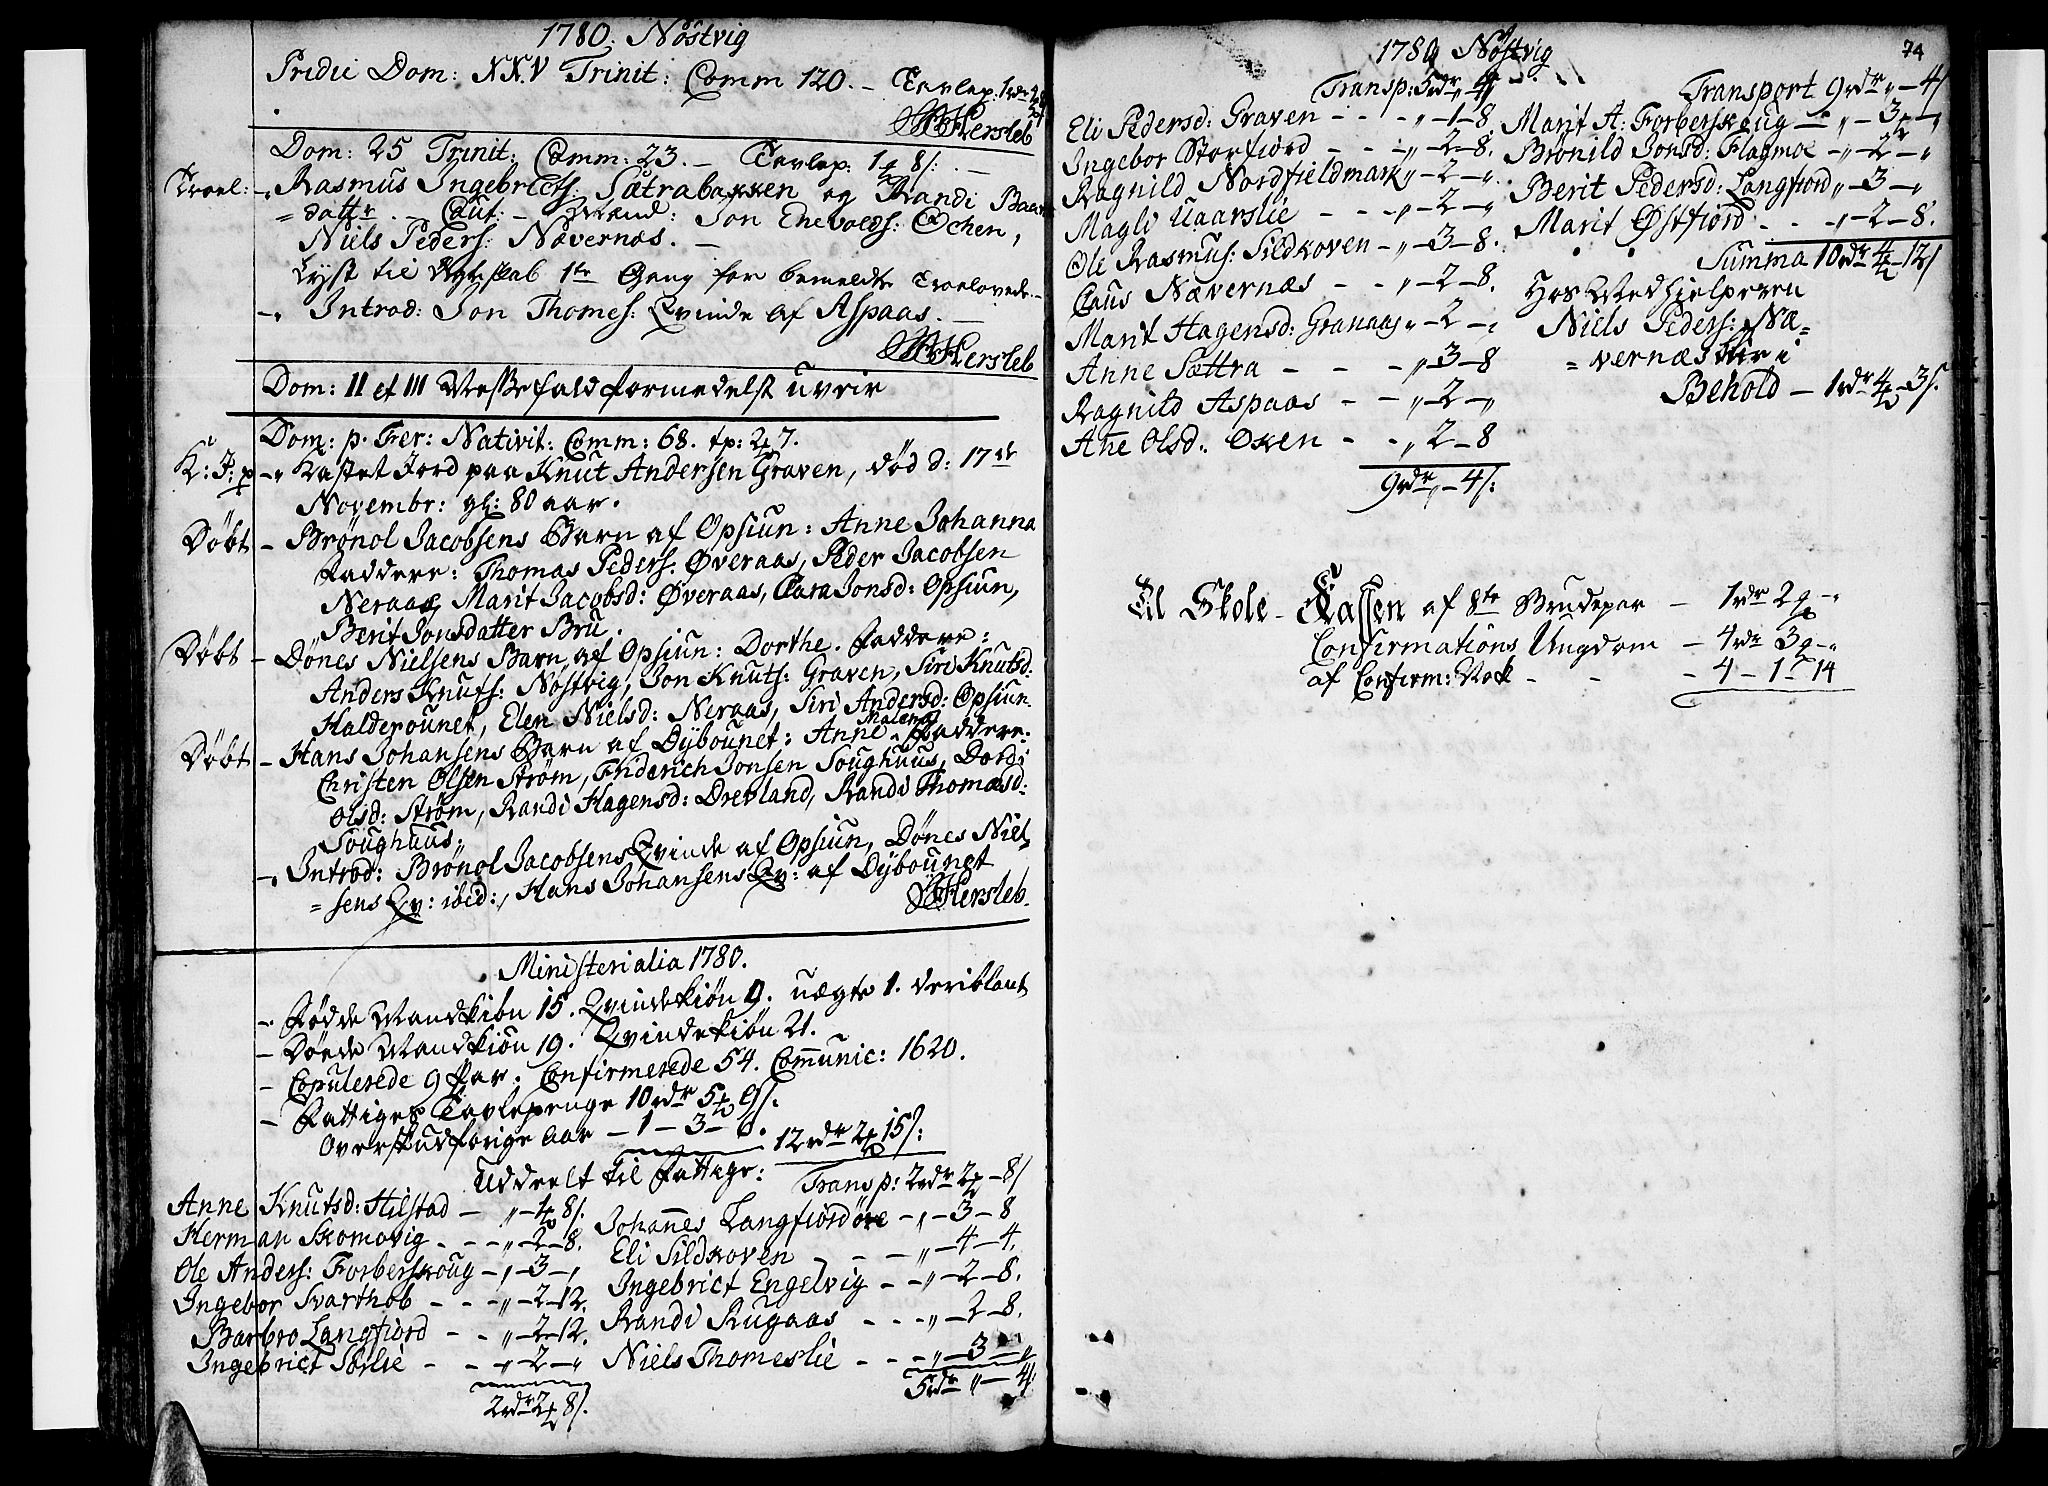 1780. Nöstvig
Pridie Dom: XXV Trinit: Comm 120. – Tavlep: 1rdr
Hersleb
Dom: 25 Trinit: Comm: 23. – Tavlep: 1 8/: –
Trol: – Rasmus Ingebricts: Sætrabakken og Randi
= datr. – Caut: – Jon Enevolds: Ochen,
Niels Peders: Nævernæs. –
Lyst til Ægteskab 1te Gang for bemeldte Troelovede –
– Introd: Jon Thomes: Qvinde af Aspaas. –
Hersleb
Dom: II et III Messefald formedelst uveir
Dom: p. Fer: Nativit: Comm: 68. tp: 2 7.
K: J: p – Kastet Jord paa Knut Andersen Graven, død d: 17de
Novembr: gl: 80 aar.
Døbt – Brönol Jacobsens Barn af Opsiun: Anne Johanna
Faddere: Thomas Peders: Øveraas, Peder Jacobsen
Neraas, Marit Jacobsd: Øveraas, Cara Jonsd: Opsiun,
Berit Jonsdatter Bru.
Døbt – Dönes Nielsens Barn af Opsiun: Dorthe. Faddere:
Anders Knuts: Nöstvig, Jon Knuts: Graven, Siri Knutsd:
Halderounet, Elen Nielsd: Neraas, Siri Andersd: Opsiun.
Døbt – Hans Johansens Barn af Dybounet: Anne Malena Faddere:
Christen Olsen Strøm, Friderich Jonsen Soughuus, Dordi
Olsd: Strøm, Randi Hagensd: Drevland, Randi Thomasd:
Soughuus.
– Introd: Brönol Jacobsens Qvinde af Opsiun, Dönes Niel
= sens Qv: ibid:, Hans Johansens Qv: af Dybounet
Hersleb
Ministerialia 1780.
– Fødde Mandkiön 15. Qvindekiön 9. uægte 1. deriblant
– Döede Mandkiön 19. Qvindekiön 21.
– Copulerede 9 Par. Confirmerede 54. Communic: 1620.
– Fattiges Tavlepenge 10rdr 5 9/:
Overskud forige Aar – 1 – 3 – 6. 12rdr 2 15/:
Uddeelt til Fattige: Transp: 2rdr 2 – 8/
Anne Knutsd: Hilstad – „ – 4 8/.
Herman Skomovig – – – „ – 2 – 8.
Ole Anders: Forberskoug – „ – 3 – „
Ingebor Svarthol – – – „ – 2 – 12.
Barbro Langfiord – – „ – 2 – 12.
Ingebrict Sörlie – – „ – 2 – „
2rdr 2 8/.
Johannes Langfiordöre – „ – 3 – 8
Eli Sildkoven – – – „ – 4 – 4.
Ingebrict Engelvig – – „ – 2 – 8.
Randi Rugaas – – – „ – 2 – 8.
Niels Thomeslie – – – „ – 3 – „
5rdr „ – 4/
1780 Nöstvig
74
Transp: 5rdr „ 4/
Eli Pedersd: Graven – – – „ – 1 – 8.
Ingebor Storfiord – – – „ – 2 – 8.
Ragnild Nordfieldmark „ – 2 – „
Magli Uaarslie – – – „ – 2 – „
Ole Rasmus: Sildkoven – „ – 3 – 8.
Claus Nævernæs – – „ – 2 – 8.
Marit Hagensd: Granaas „ – 2 – „
Anne Sættra – – – „ 3 – 8
Ragnild Aspaas – – „ – 2 – „
Ane Olsd: Oxen – – „ 2 – 8
9rdr „ – 4/:
Transport 9rdr „ – 4/
Marit A: Forberskoug – „ – 3 – „
Brönild Jonsd: Flagmoe – „ – 2 – „
Berit Pedersd: Langfiord „ – 3 – „
Marit Østfiord – – „ – 2 – 8.
Summa 10rdr 4 – 12/
Hos Medhielperen
Niels Peders: Næ=
= vernæs bliver i
Behold – 1rdr 4 – 3/.
Til Skole – Cassen af 8te Brudepar – 1rdr 2 – „
Confirmations Ungdom – 4rdr 3 – „
af Confirm: – – – 4 – 1 – 14